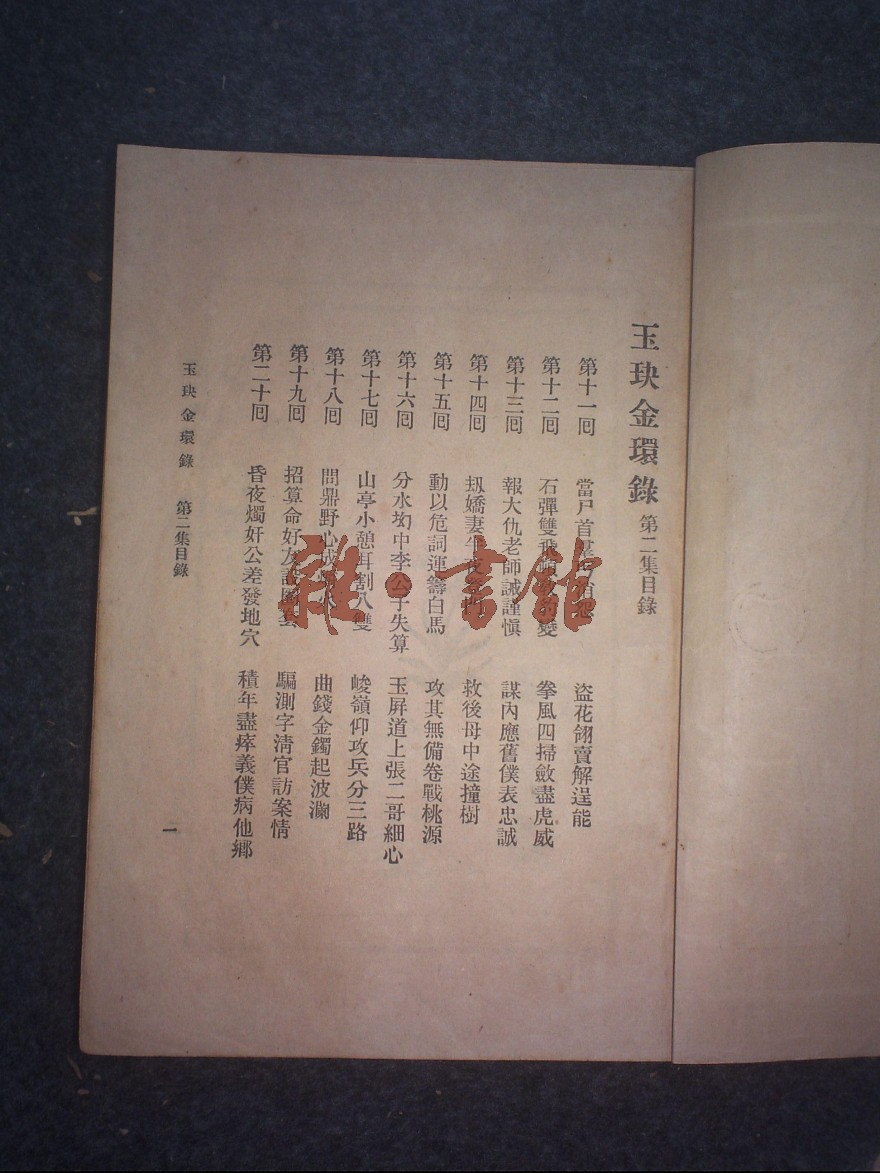 玉玦金環錄 第二集目錄
第十一囘 當戶首 盜花翎賣解逞能
第十二囘 石彈雙飛 變 拳風四掃斂盡虎威
第十三囘 報大仇老師誡謹愼 謀內應舊僕表忠誠
第十四囘 刼嬌妻半夜 救後母中途撞樹
第十五囘 動以危詞運籌白馬 攻其無備卷戰桃源
第十六囘 分水坳中李公子失算 玉屏道上張二哥細心
第十七囘 山亭小憩耳割八雙 峻嶺仰攻兵分三路
第十八囘 問鼎野心成 曲錢金鐲起波瀾
第十九囘 招算命好友設圈套 騙測字淸官訪案情
第二十囘 昏夜燭奸公差發地穴 積年盡瘁義僕病他鄉
玉玦金環錄 第二集目錄 一
雜·書館